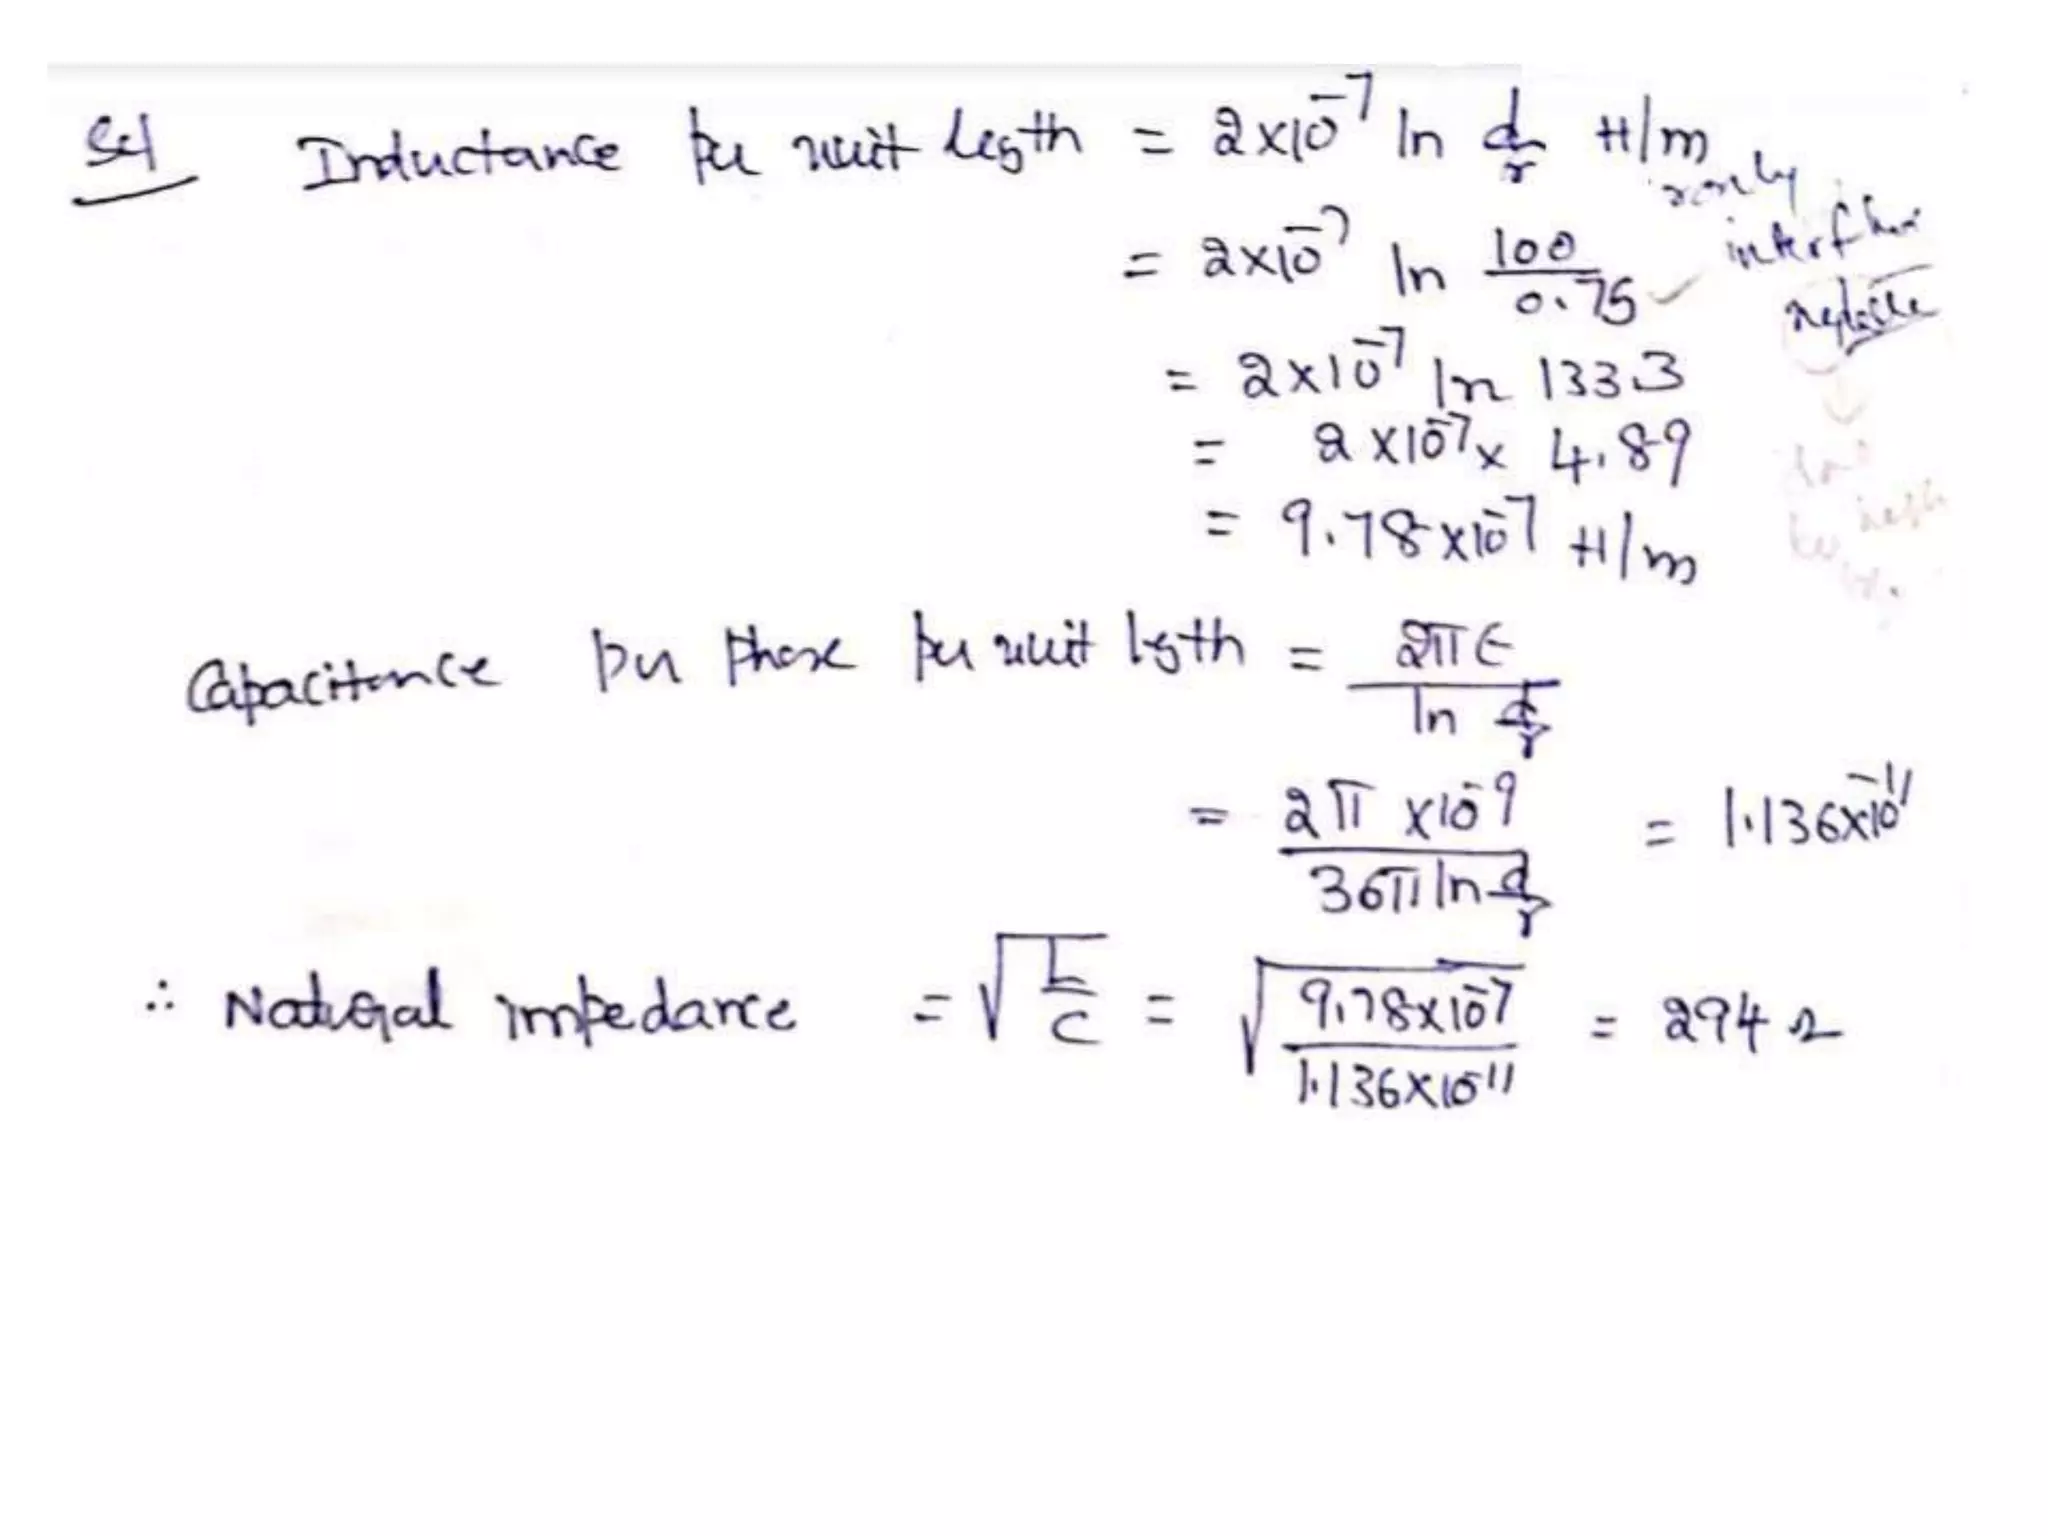 Sol Inductance per unit length = 2×10⁻⁷ ln d/r H/m
= 2×10⁻⁷ ln 100/0.75
= 2×10⁻⁷ ln 133.3
= 2×10⁻⁷× 4.89
= 9.78×10⁻⁷ H/m
Capacitance per phase per unit lgth = 2πε/ln d/r
= 2π ×10⁻⁹/36π ln d/r = 1.136×10⁻¹¹
∴ Natural impedance = √L/C = √9.78×10⁻⁷/1.136×10⁻¹¹ = 294 Ω